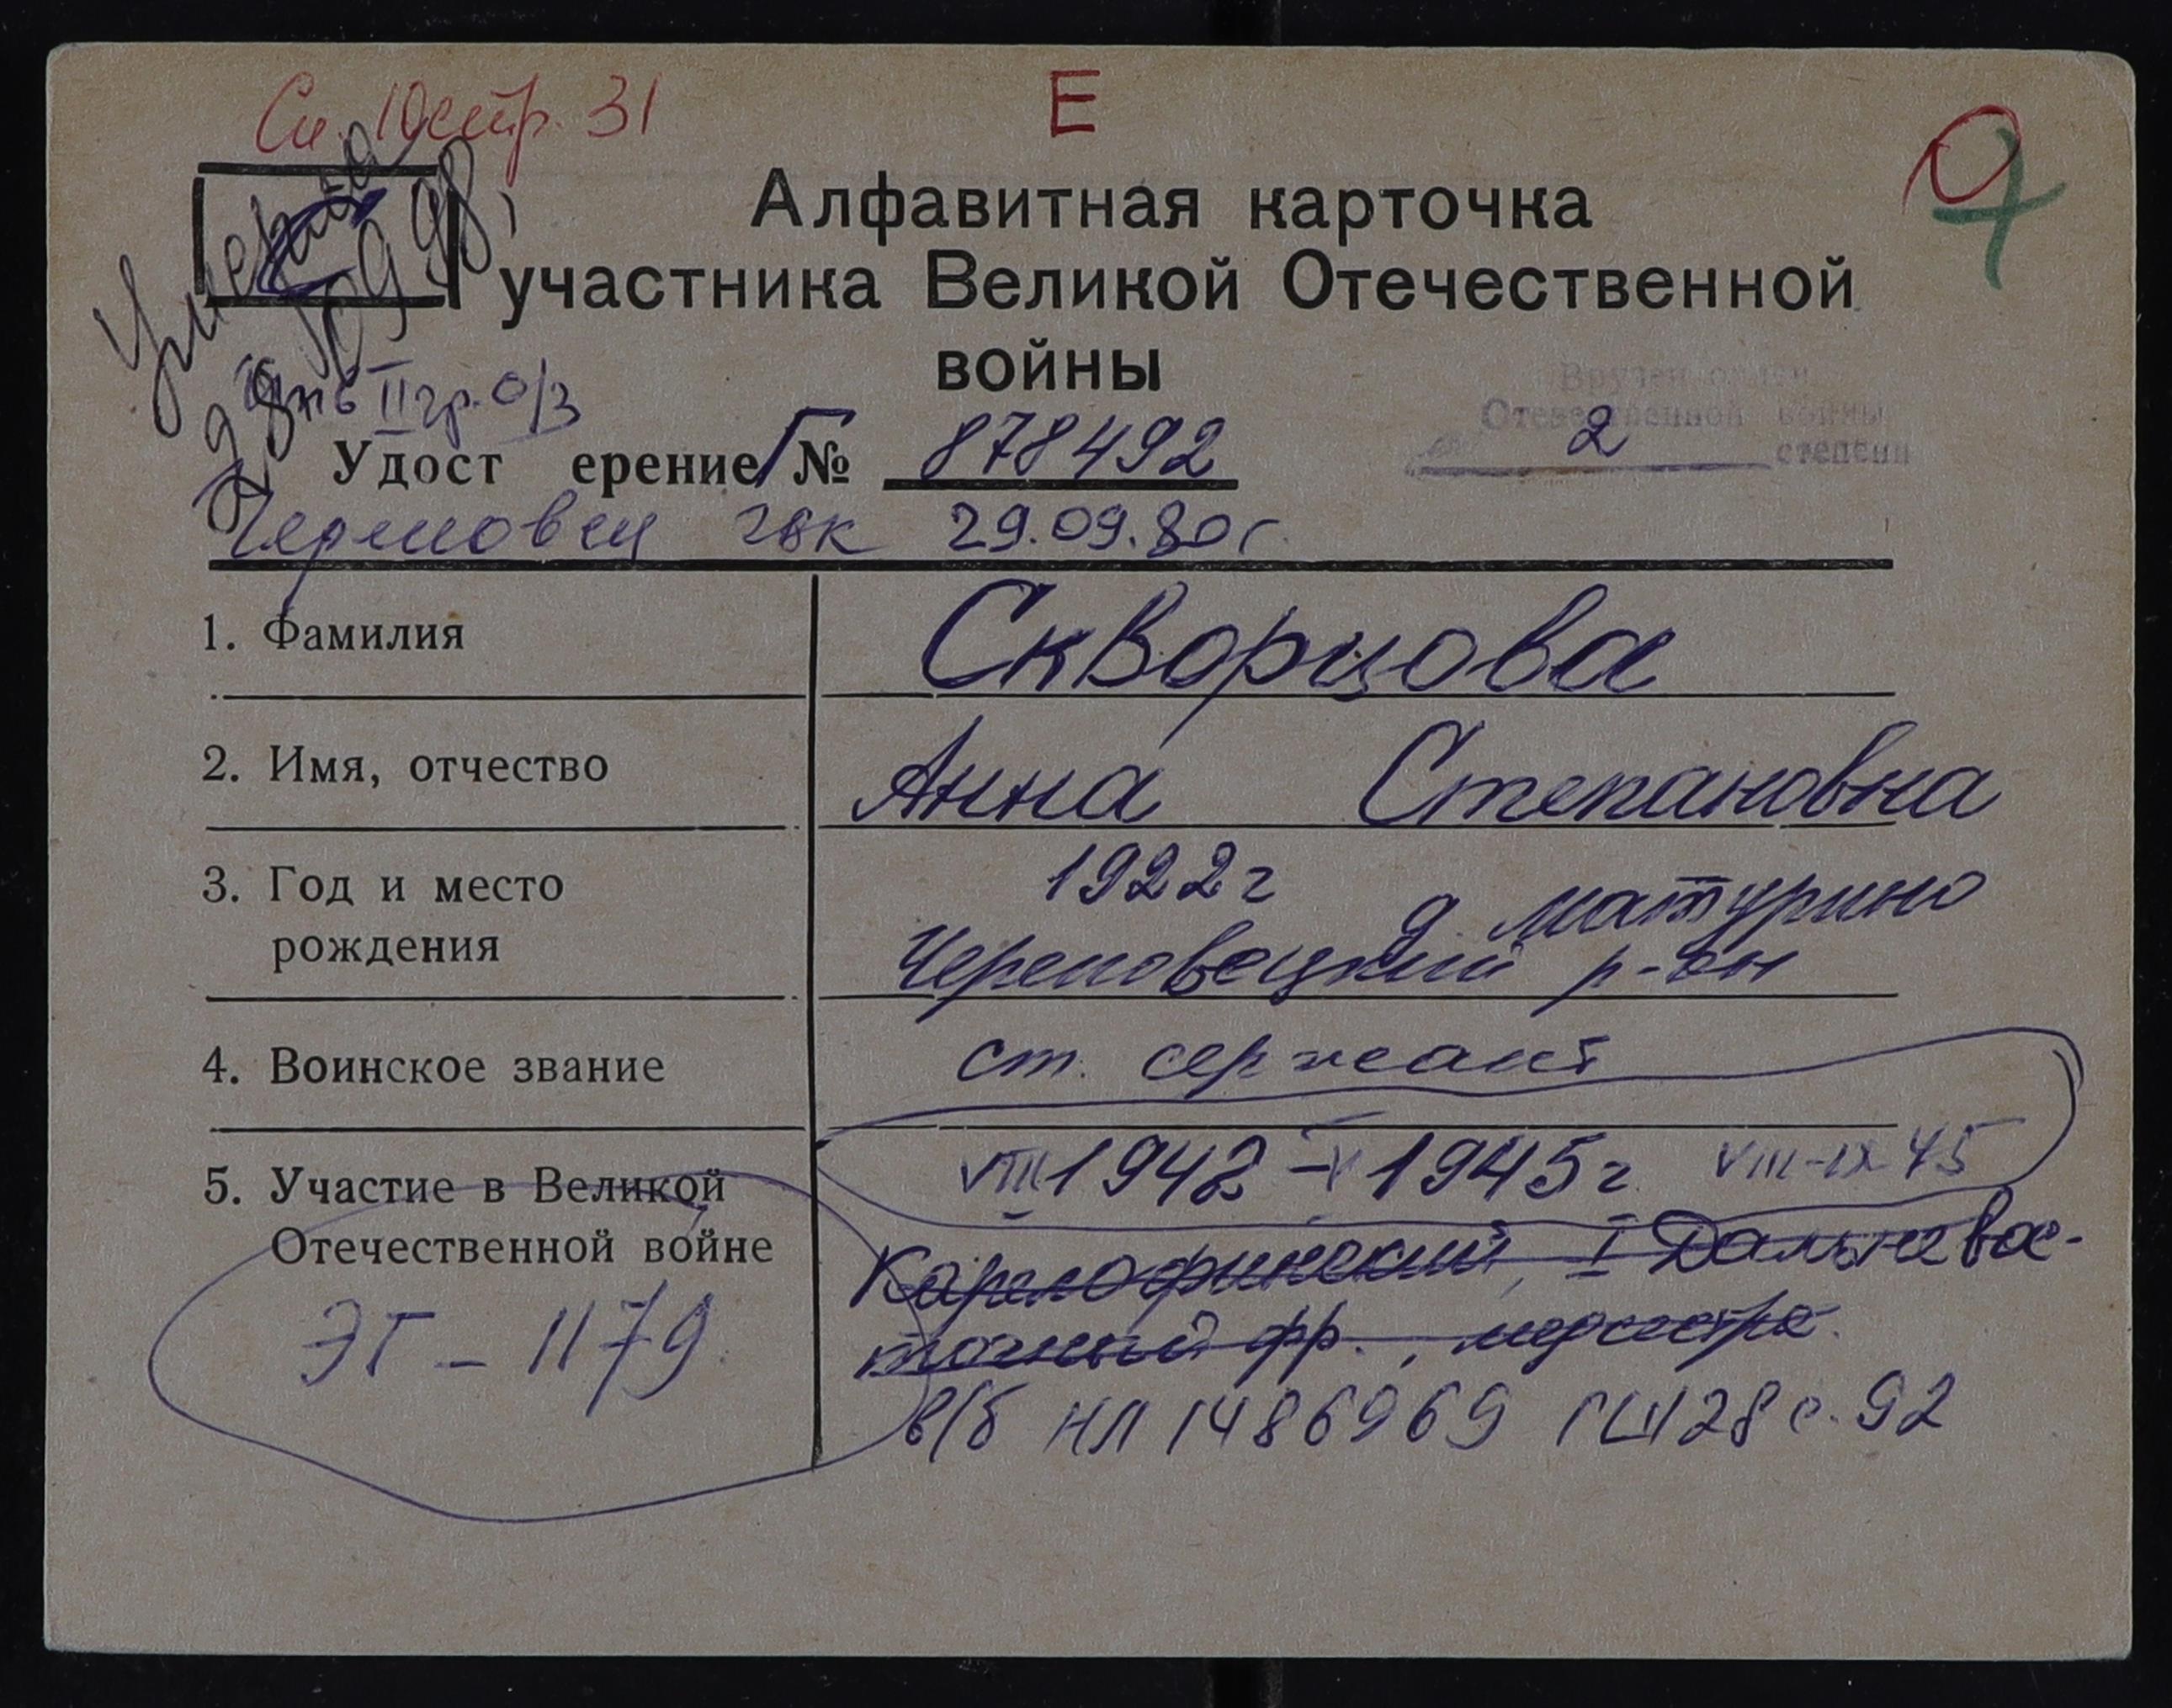 Сп. 10 стр. 31
Е
Умерла
10 9 98
Алфавитная карточка
участника Великой Отечественной
войны
II гр. о/з
Вручен орден
Отечественной войны
2 степени
Удост ерение Г № 878492
Череповец гвк 29.09.80 г.
1. Фамилия Скворцова
2. Имя, отчество Анна Степановна
3. Год и место 1922 г
д. Матурино
рождения Череповецкий р-он
4. Воинское звание ст. сержант
5. Участие в Великой VIII 1942 – V 1945 г VIII-IX 45
Отечественной войне Карелофинский, I Дальневос-
точный фр., медсестра.
ЭГ – 1179
в/б НЛ 1486969 ГШ 28 с. 92